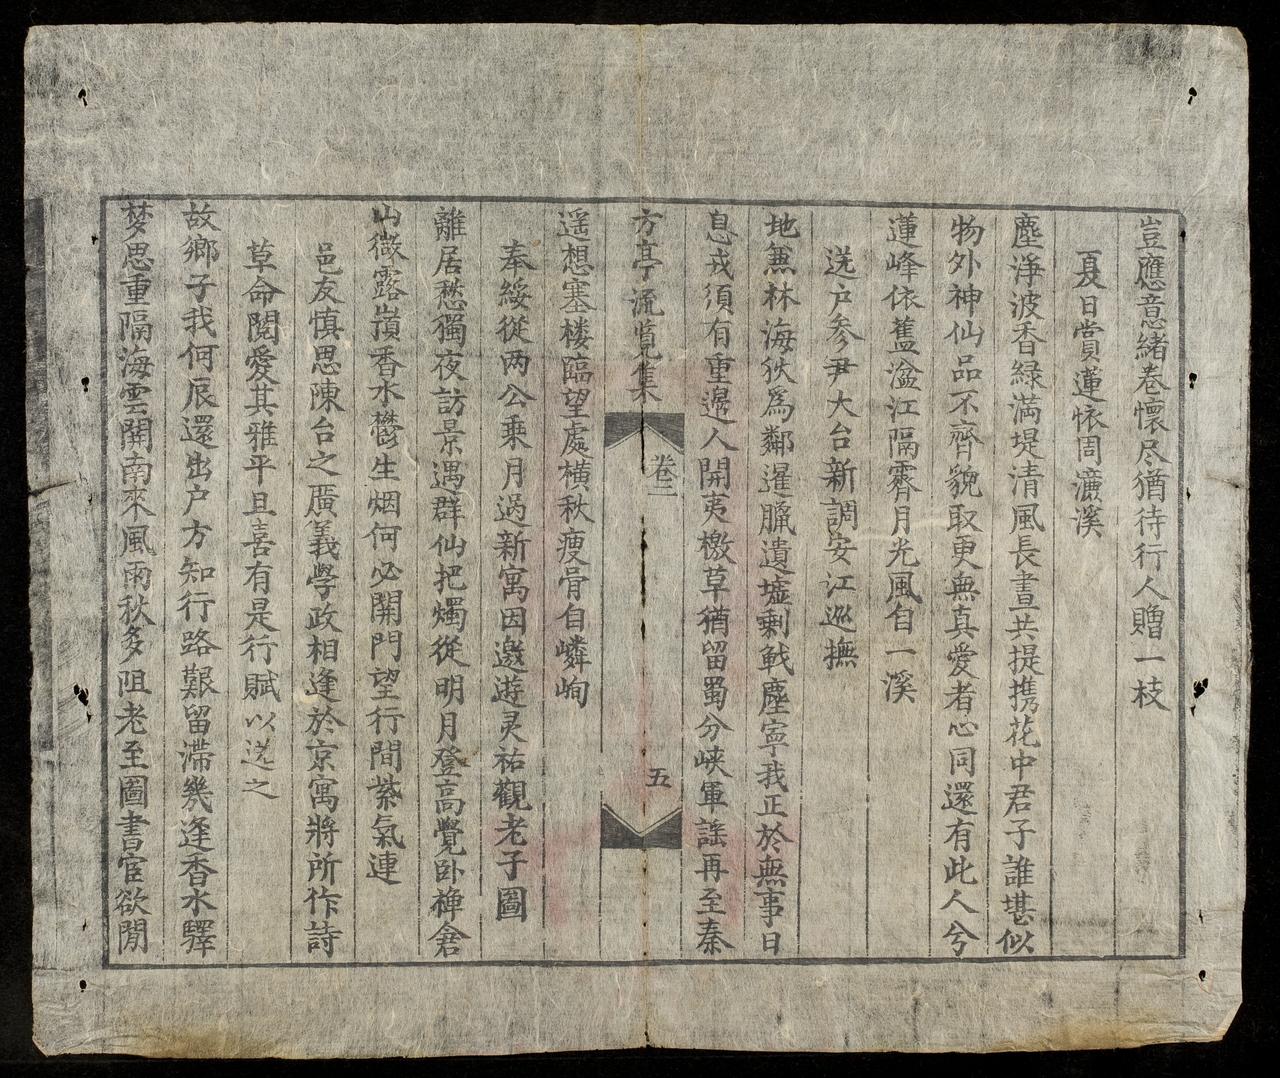 豈應意緒卷懷尽猶待行人贈一枝
夏日賞蓮怀周濂溪
塵淨波香緑满堤清風長晝共提携花中君子誰堪似
物外神仙品不齊貌取更無真愛者心同還有此人兮
蓮峰依舊湓江隔霽月光風自一溪
送户参尹大台新調安江巡撫
地無林海狄為鄰暹臘遺墟剩戰塵寧我正於無事日
息戎須有重邊人開夷檄草猶留蜀分峽軍謡再至秦
方亭流覽集
卷二
五
遥想塞楼臨望處横秋瘦骨自嶙峋
奉綏從两公乘月過新寓因邀遊灵祐觀老子圖
離居愁獨夜訪景遇群仙把燭從明月登高覺卧禅龛
山微露嵿香水欝生烟何必開門望行間紫氣連
邑友慎思陳台之厲義學政相逢於京寓將所作詩
草命閱愛其雅平且喜有是行賦以送之
故鄉子我何辰還出户方知行路艱留滞幾逢香水驛
梦思重隔海雲関南來風雨秋多阻老至圖書宦欲閒